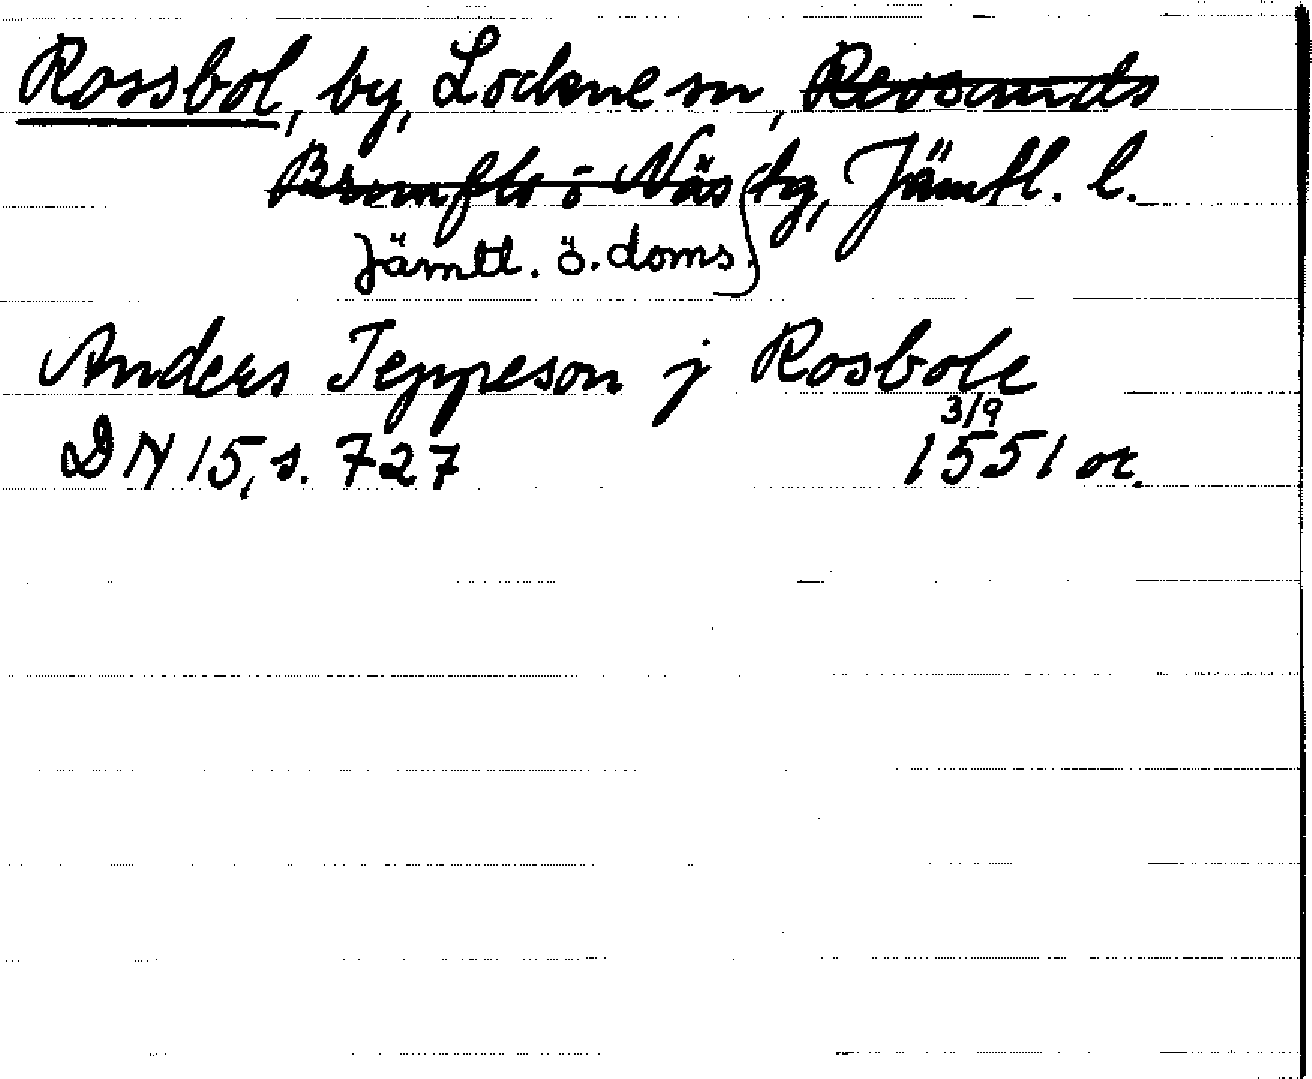 Rossbol, by, Lockne sn, Revsunds
Brunflo o Näs tg, Jämtl. l.
Jämtl. ö. doms.
Anders Jeppeson j Rosbole
3/9
DN 15, s. 727 1551 or.